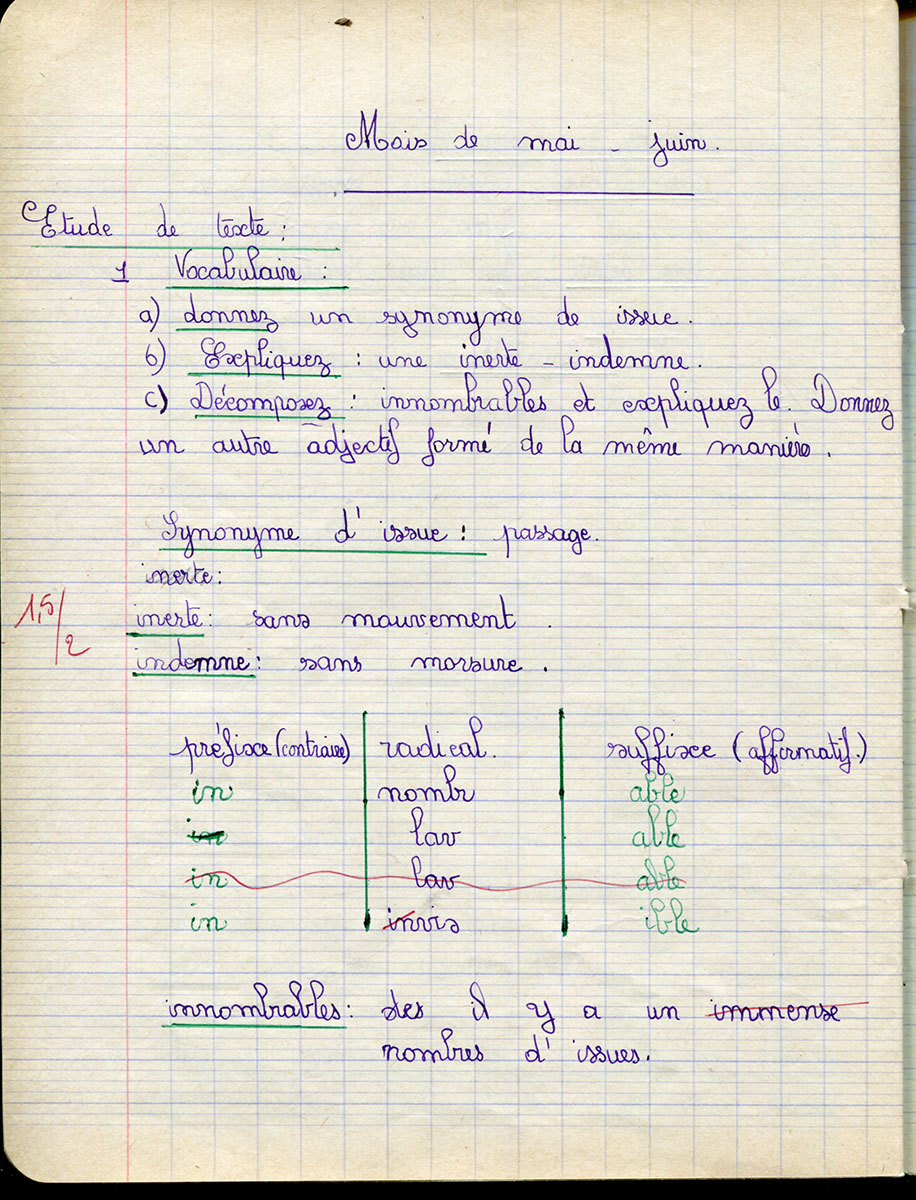 Mois de mai - juin.
Etude de texte :
1 Vocabulaire :
a) donnez un synonyme de issue.
b) Expliquez : une inerte - indemne.
c) Décomposez : innombrables et expliquez le. Donnez
un autre adjectif formé de la même manière.
Synonyme d'issue : passage.
inerte :
1,5/2
inerte : sans mouvement.
indemne : sans morsure.
préfixe (contraire) radical. suffixe (affirmatif.)
in nombr able
in lav able
in lav able
in invis ible
innombrables : il y a un immense
nombres d'issues.